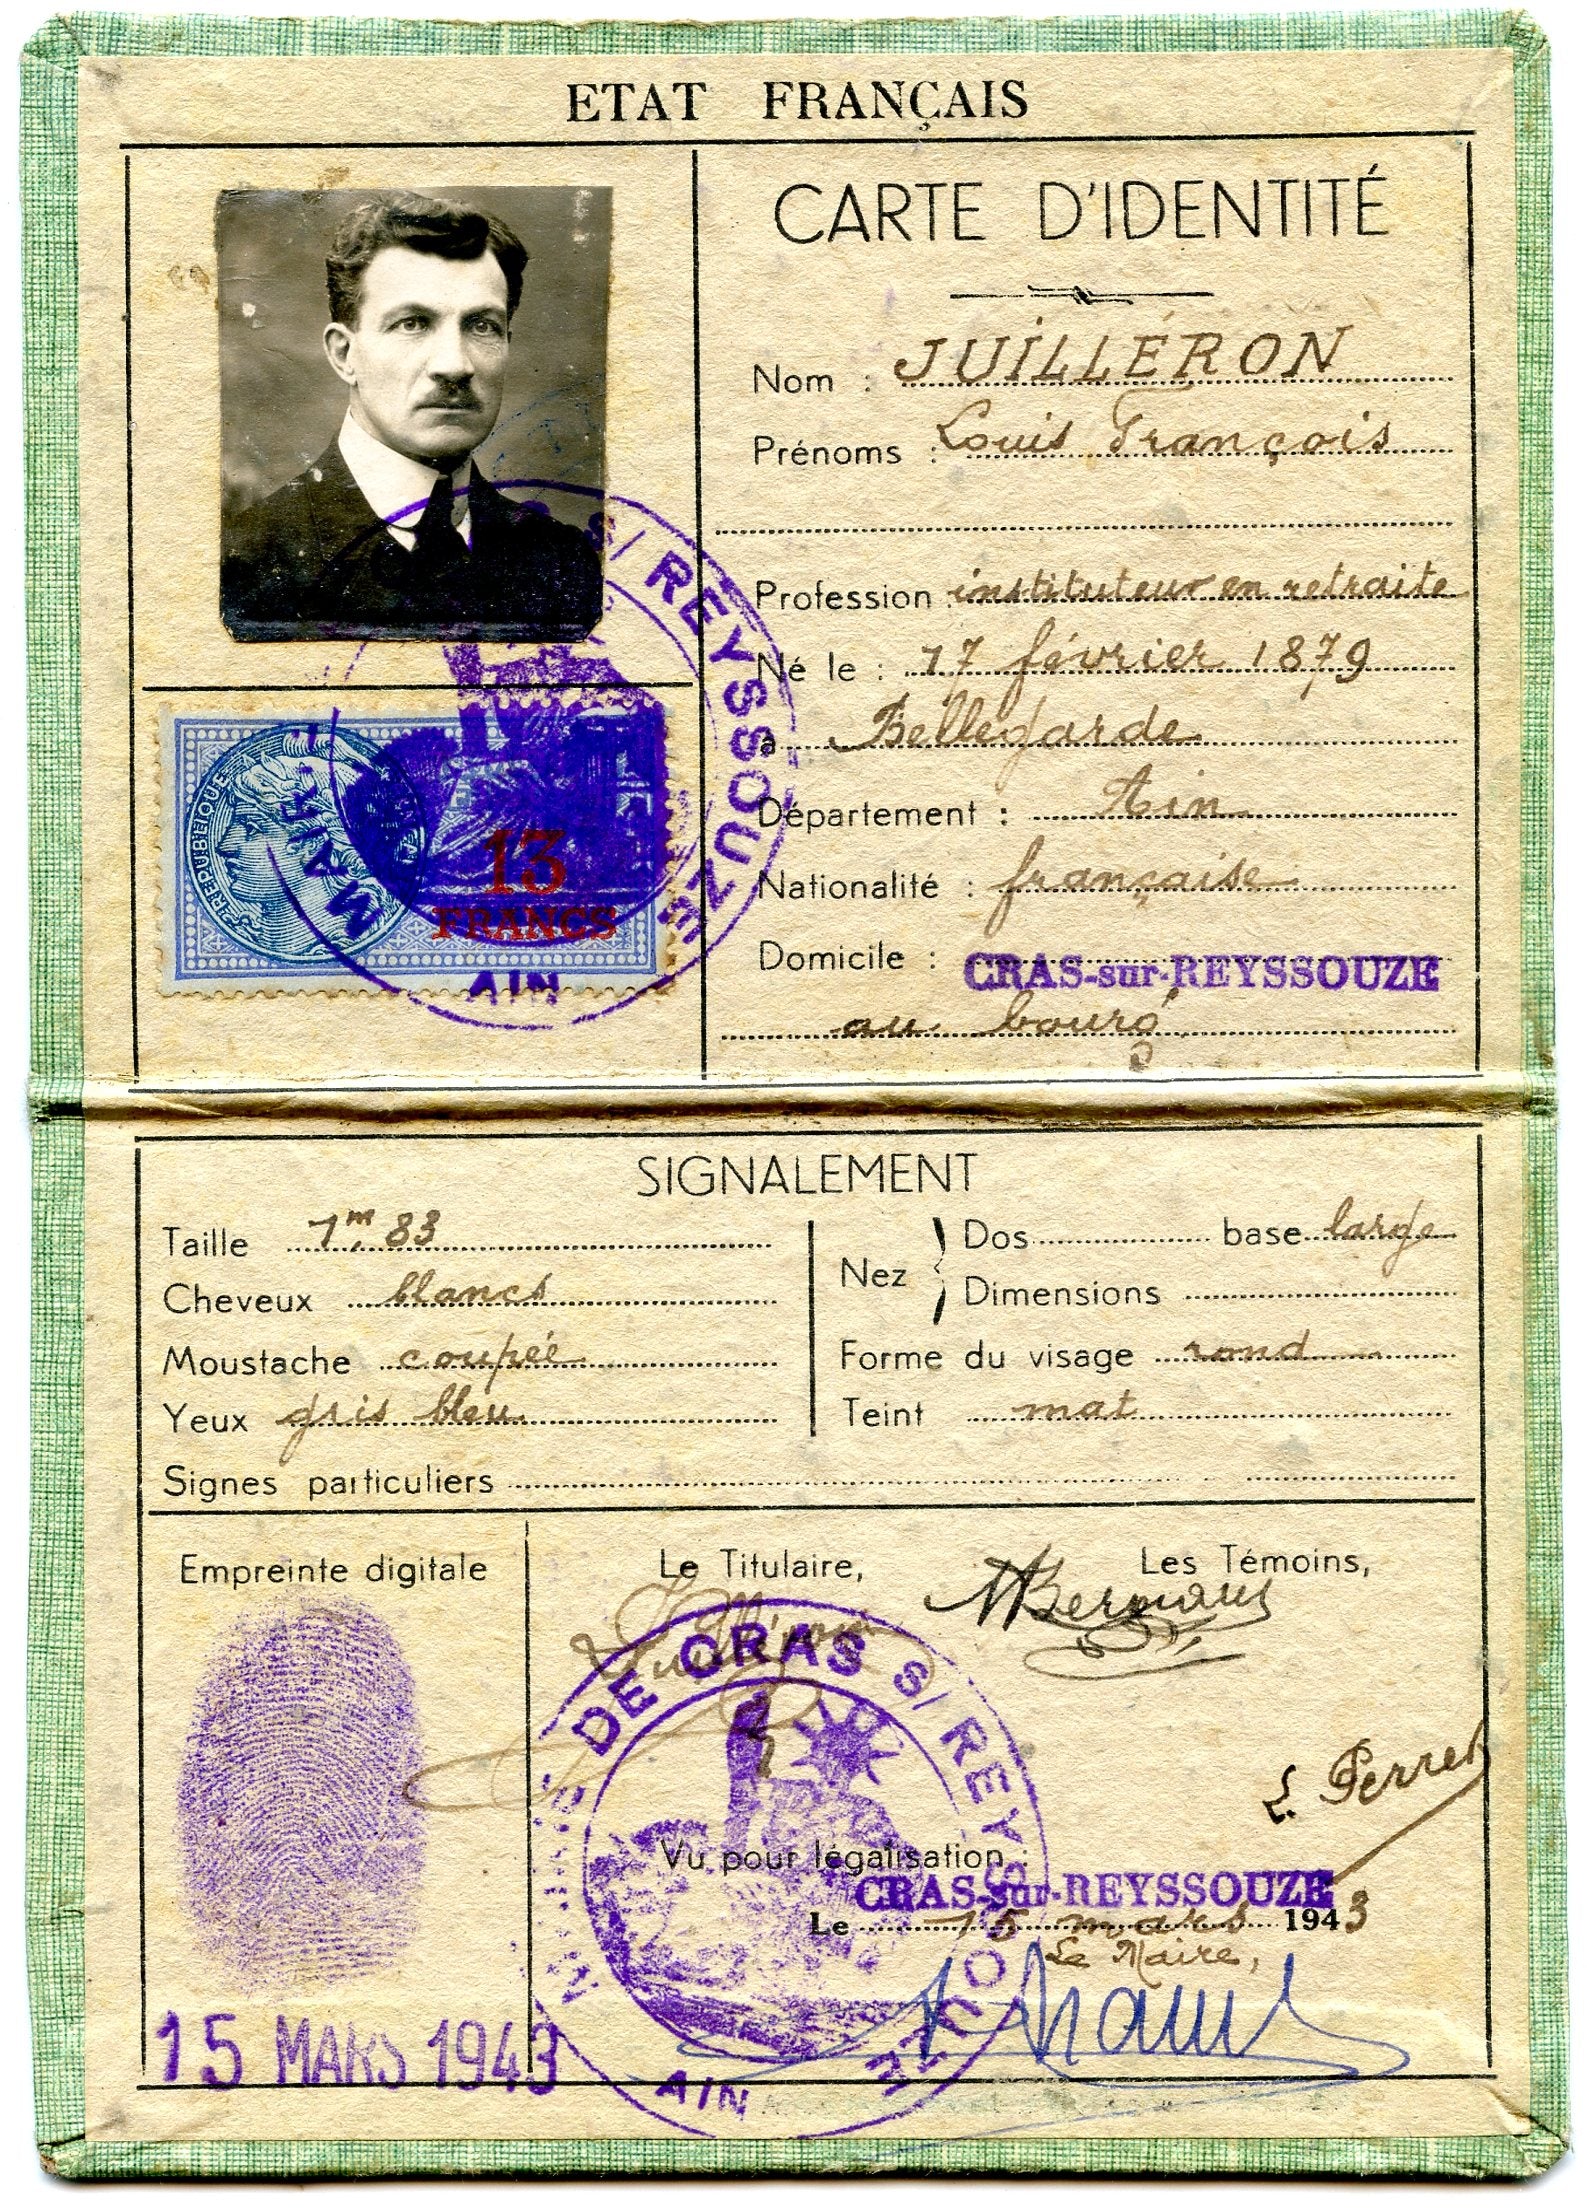 ETAT FRANÇAIS
CARTE D'IDENTITÉ
Nom : JUILLÉRON
Prénoms : Louis François
Profession : instituteur en retraite
Né le : 17 février 1879
à Bellegarde
Département : Ain
Nationalité : française
Domicile : CRAS-sur-REYSSOUZE
au bourg
S/ REYSSOUZE
MAIRIE
AIN
REPUBLIQUE
13
FRANCS
SIGNALEMENT
Taille 1m.83
Cheveux blancs
Moustache coupée
Yeux gris bleu
Signes particuliers
Nez
Dos base large
Dimensions
Forme du visage rond
Teint mat
Empreinte digitale
15 MARS 1943
Le Titulaire,
Juilléron
Les Témoins,
L. Perret
DE CRAS S/ REYSSOUZE
AIN
Vu pour légalisation :
CRAS-sur-REYSSOUZE
Le 15 mars 1943
Le Maire,